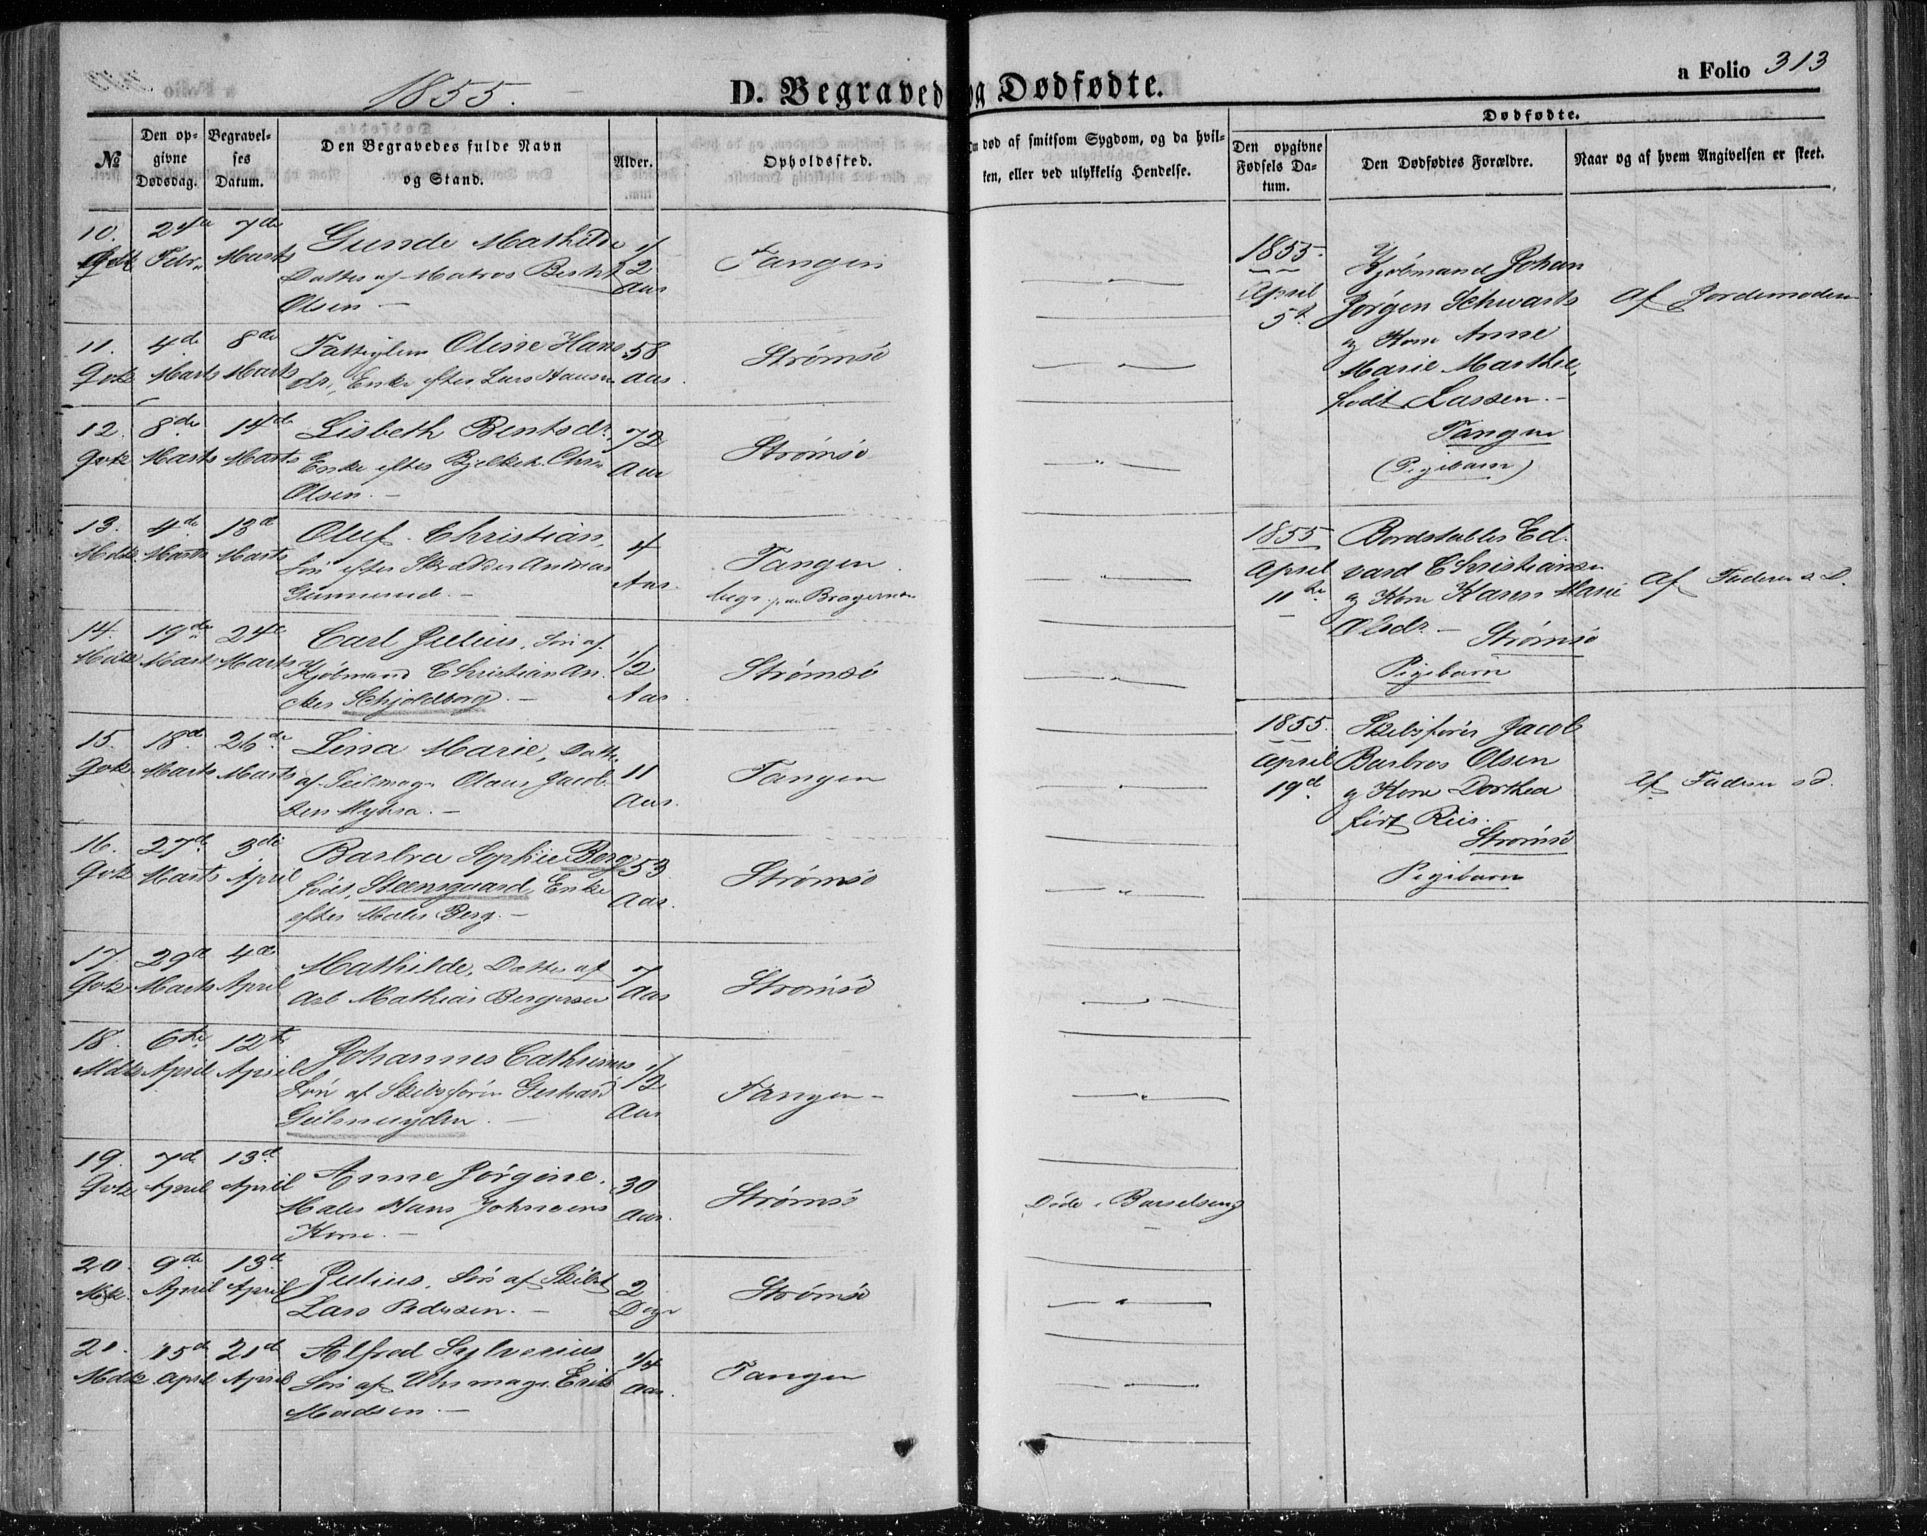 1855.
D. Begravede og Dødfødte.
a Folio 313
№
Den opgivne Dødsdag.
Begravelses Datum.
Den Begravedes fulde Navn og Stand.
Alder.
Opholdssted.
død af smitsom Sygdom, og da hvilken, eller ved ulykkelig Hendelse.
Dødfødte.
Den opgivne Fødsels Datum.
Den Dødfødtes Forældre.
Naar og af hvem Angivelsen er skeet.
10. 24de 7de Gunde Mathilde 1/2
Febr. Marts Datter af Matros Tangen
Olsen.- Aar
11. 4de 8de Fattiglem Oline Hans 58 Strømsø
Qvk Marts Marts dr, Enke efter Lars Hansen Aar.
12. 8de 14de Lisbeth Bentsdr. 72
Qvk Marts Marts Enke efter Bjelkeh. Chr. Aar Strømsø
Olsen.-
13. 4de 13d Oluf Christian, 4
Mdk. Marts Marts Søn efter Skrædder Andreas Aar. Tangen.
Gunnerud.- begr. paa Bragernæs
14. 19de 24de Carl Julius, Søn af 1/2
Mdk Marts Marts Kjøbmand Christian An- Aar Strømsø
ders Schjoldborg.-
15. 18d 26de Lina Marie, Datter 11
Qvk. Marts Marts af Seilmag. Olaus Jacob- Aar. Tangen
sen Myhra.-
16. 27d 3die Barbra Sophie Berg 53
Qvk Marts April født Steensgaard, Enke Aar. Strømsø
efter Maler Berg.-
17. 29d 4de Mathilde, Datter af 7
Qvk Marts April Arb Mathias Bergersen Aar Strømsø
18. 6te 12te Johannes Cathrinus 1/2
Mdk April April Søn af Skibsfører Gerhard Aar Tangen-
Geelmuyden.-
19. 7de 13d Anne Jørgine, 30
Qvk April April Maler Hans Johnsens Aar. Strømsø Døde i Barselseng
Kone.-
20. 9de 13d Julius, Søn af Skibst 2
Mk. April April Lars Pedersen.- Døgn Strømsø
21. 15d 21d Alfred Sylverius, 1/4
Mdk April April Søn af Uhrmager Erik Aar. Tangen
Madsen.-
1855. Kjøbmand Johan
April Jørgen Schwartz Af Jordemoderen
5t. og Kone Anne
Marie Marthee,
født Lassen.-
Tangen
(Pigebarn)
1855 Bordstabler Ed-
April vard Christiansen Af Faderen s. D.
11te og Kone Karen Marie
Olsdr.- Strømsø
Pigebarn
1855. Skibsfører Jacob
April Barbros Olsen
19d. og Kone Dorthea Af Faderen s D.
født Riis.
Strømsø
Pigebarn